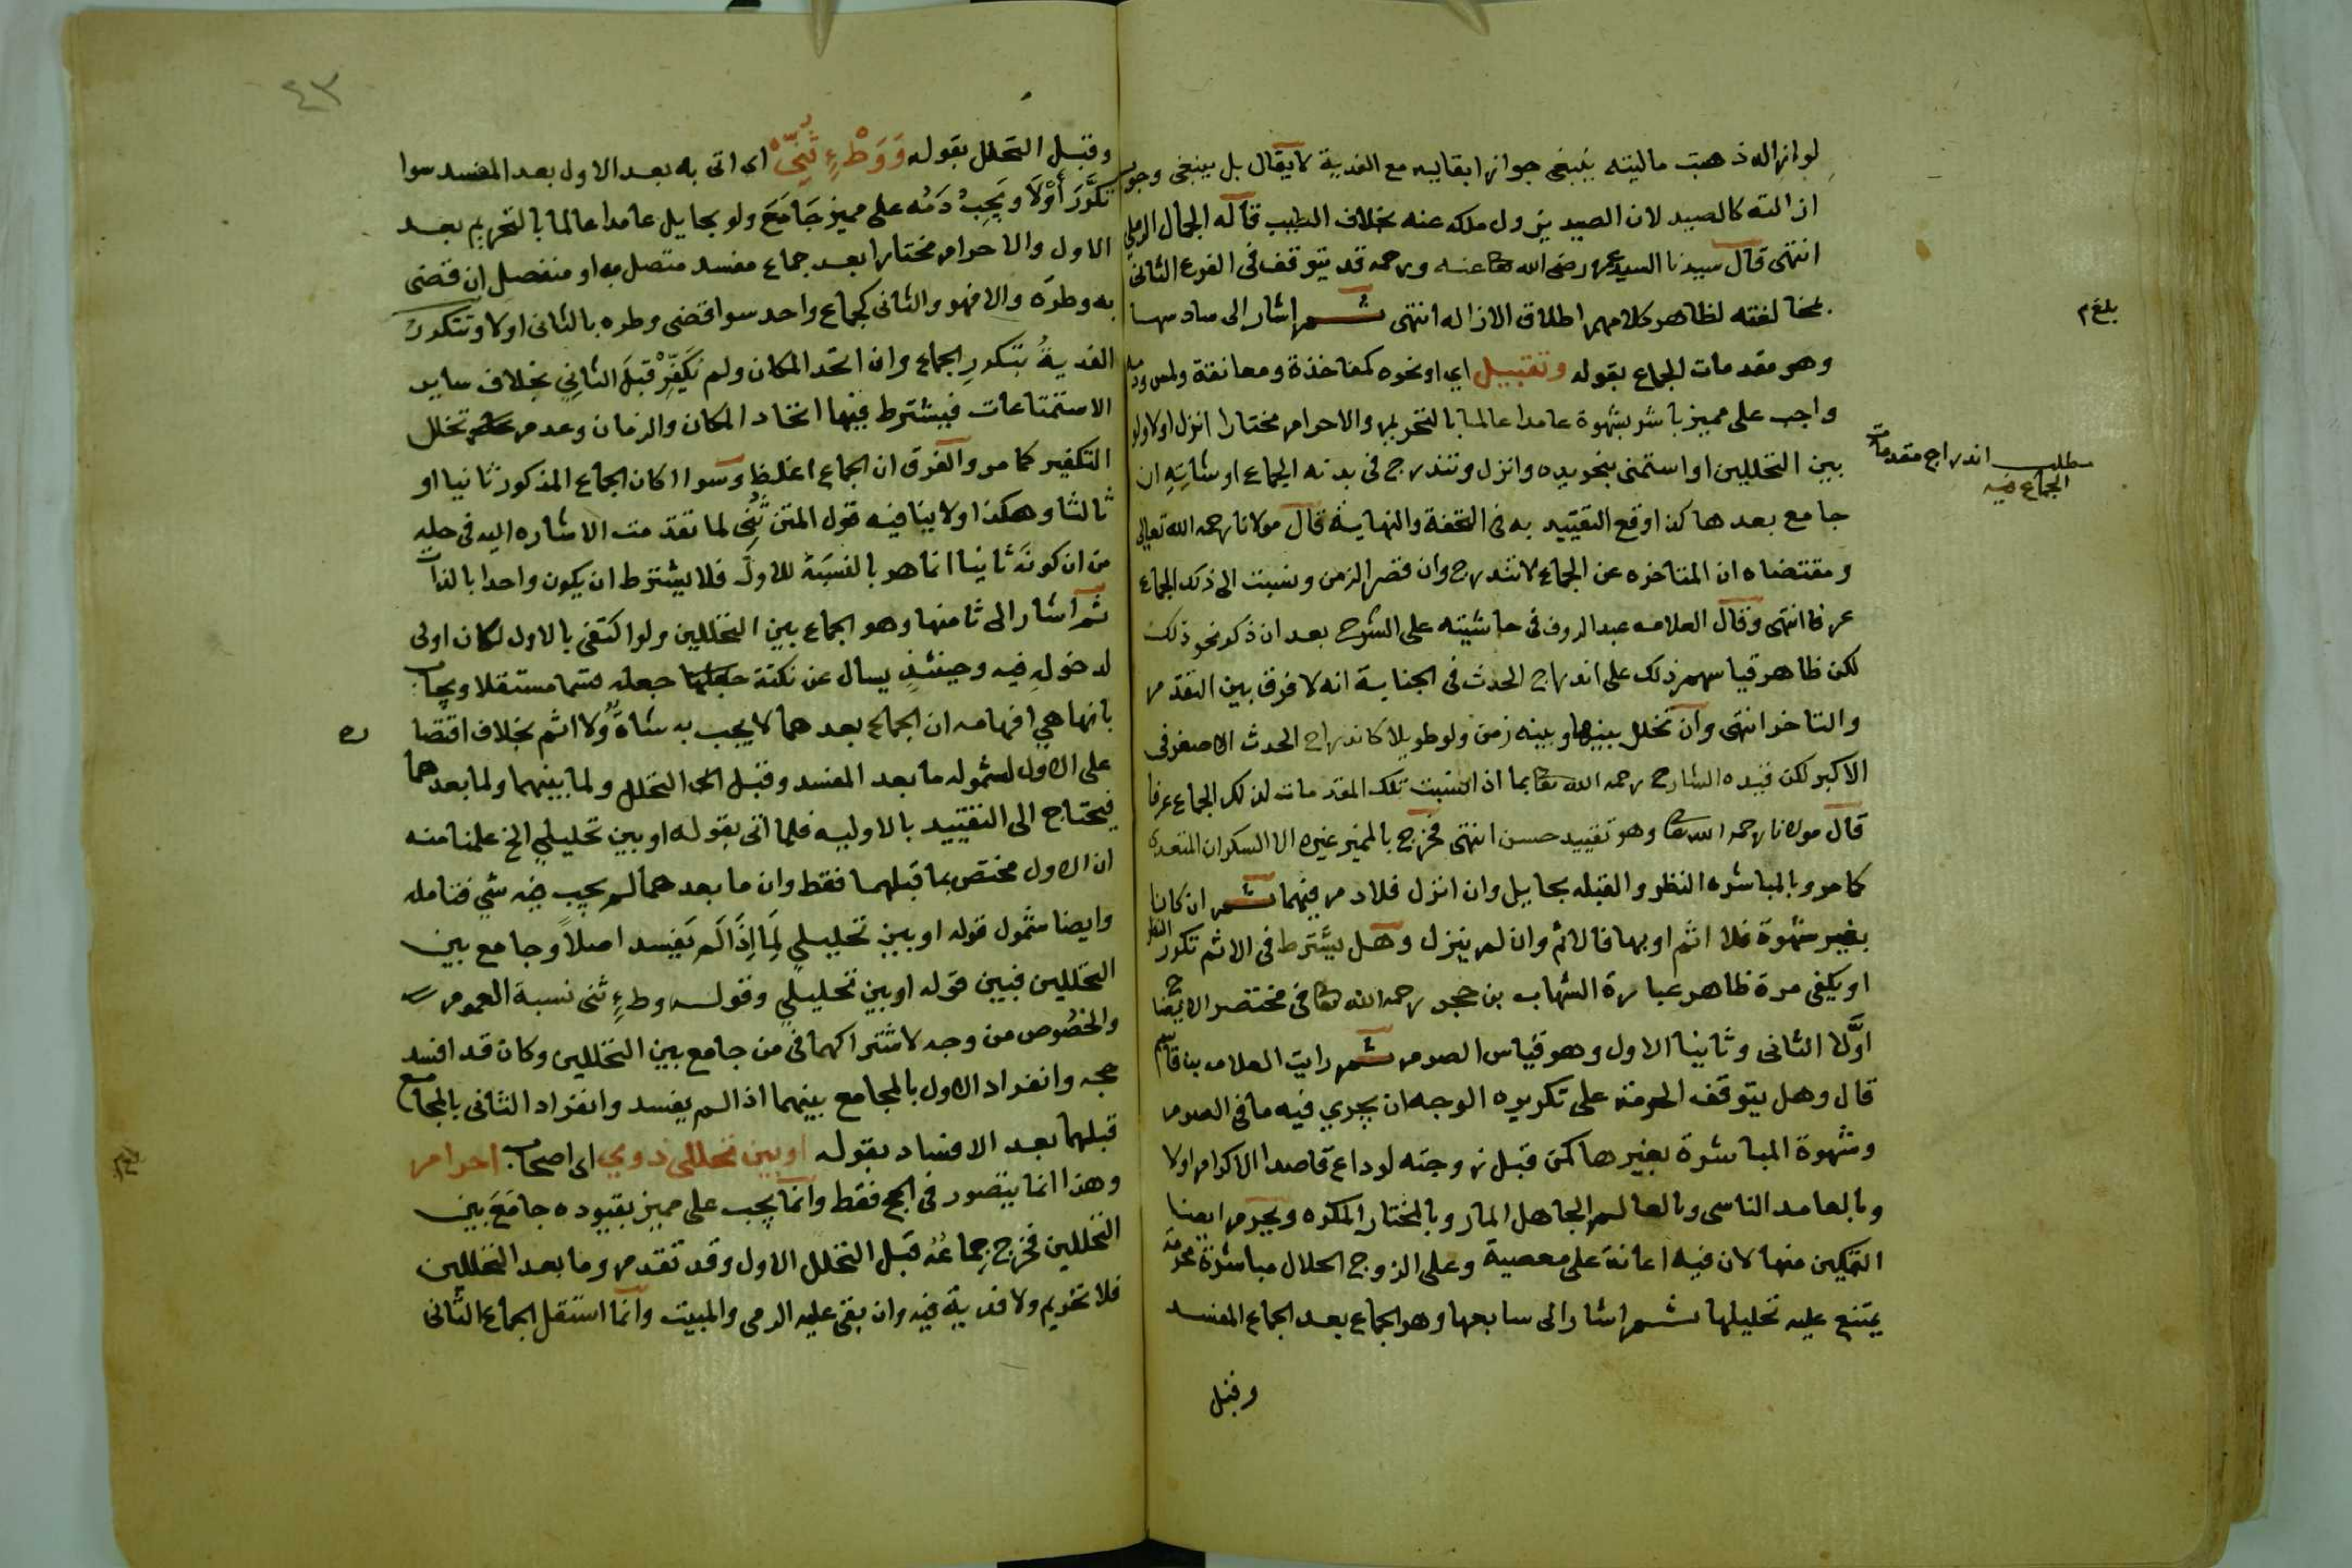 لو ازاله ذهبت ماليته ينبغي جواز ابقايه مع الفدية لا يقال بل ينبغي وجوب
ازالته كالصيد لان الصيد يزول ملكه عنه بخلاف الطيب قاله الجمال الرملي
انتهى قال سيدنا السيد عمر رضي الله تعا عنه ورحمه قد يتوقف في الفرع الثاني
بمخالفته لظاهر كلامهم اطلاق الازاله انتهى ثم اشار الى سادسها
وهو مقدمات الجماع بقوله وتقبيل اي او نحوه كمفاخذة ومعانقة ولمس ودمه
واجب على مميز باشر بشهوة عامدا عالما بالتحريم والاحرام مختارا انزل اولا ولو
بين التحللين او استمنى بنحو يده وانزل وتندرج في بدنه الجماع او شاته ان
جامع بعدها كذا وقع التقييد به في التحفة والنهاية قال مولانا رحمه الله تعالى
ومقتضاه ان المتاخره عن الجماع لا تندرج وان قصر الزمن ونسبت الى ذكد الجماع
عرفا انتهى وقال العلامه عبد الروف في حاشيته على الشرح بعد ان ذكر نحو ذلك
لكن ظاهر قياسهم ذلك على اندراج الحدث في الجنابة انه لا فرق بين التقدم
والتاخر انتهى وان تخلل بينها وبينه زمن ولو طويلا كاندراج الحدث الاصغر في
الاكبر لكن قيده الشارح رحمه الله تعا بما اذا نسبت تلك المقدمات لذلك الجماع عرفا
قال مولانا رحمه الله تعا وهو تقييد حسن انتهى فخرج بالمميز غيره الا السكران المتعدي
كما مر وبالمباشره النظر والقبله بحايل وان انزل فلا دم فيهما ثم ان كانا
بغير شهوة فلا اثم او بها فالاثم وان لم ينزل وهل يشترط في الاثم تكرر النظر
او يكفي مرة ظاهر عبارة الشهاب بن حجر رحمه الله تعا في مختصر الايضاح
اولا الثاني وثانيا الاول وهو قياس الصوم ثم رايت العلامه بن قاسم
قال وهل يتوقف الحرمة على تكريره الوجه ان يجري فيه ما في الصوم
وشهوة المباشرة بغيرها كمن قبل زوجته لوداع قاصدا الاكرام اولا
وبالعامد الناسي وبالعالم الجاهل المار وبالمختار المكره ويحرم ايضا
التمكين منها لان فيه اعانة على معصية وعلى الزوج الحلال مباشرة محرمة
يمتنع عليه تحليلها ثم اشار الى سابعها وهو الجماع بعد الجماع المفسد
وقبل
بلغ م
مطلب اندراج مقدمات
الجماع فيه
٤٣
وقبل التحلل بقوله وَوَطْءٍ ثُنِّيَ اي اتى به بعد الاول بعد المفسد سوا
تكرر أوْلا ويجب دمه على مميز جامع ولو بحايل عامدا عالما بالتحريم بعد
الاول والاحرام مختارا بعد جماع مفسد متصل به او منفصل ان قضى
به وطره والا فهو والثاني كجماع واحد سوا قضى وطره بالثاني اولا وتتكرر
الفدية بتكرر الجماع وان اتحد المكان ولم يكفر قبل الثاني بخلاف ساير
الاستمتاعات فيشترط فيها اتحاد المكان والزمان وعدم تخلل
التكفير كما مر والفرق ان الجماع اغلظ وسوا اكان الجماع المذكور ثانيا او
ثالثا وهكذا ولا ينافيه قول المتن ثني لما تقدمت الاشاره اليه في حله
من ان كونه ثانيا انما هو بالنسبة للاول فلا يشترط ان يكون واحدا بالذات
ثم اشار الى ثامنها وهو الجماع بين التحللين ولو اكتفى بالاول لكان اولى
لدخوله فيه وحينئذ يسال عن نكتة جعله قسما مستقلا ويجاب
بانها هي افهامه ان الجماع بعدهما لا يجب به شاة ولا اثم بخلاف اقتصا
ره
على الاول لشموله ما بعد المفسد وقبل التحلل ولما بينهما ولما بعدهما
فيحتاج الى التقييد بالاوليه فلما اتى بقوله او بين تحليلي الخ علمنا منه
ان الاول مختص بما قبلهما فقط وان ما بعدهما لم يجب فيه شي فتامله
وايضا شمول قوله او بين تحليلي لما اذا لم يفسد اصلا وجامع بين
التحللين فبين قوله او بين تحليلي وقوله وطءٍ ثني نسبة العموم
والخصوص من وجه لاشتراكهما في من جامع بين التحللين وكان قد افسد
حجه وانفراد الاول بالمجامع بينهما اذا لم يفسد وانفراد الثاني بالمجامع
قبلهما بعد الافساد بقوله او بين تحللي ذوي اي اصحاب احرام
وهذا انما يتصور في الحج فقط وانما يجب على مميز بقيوده جامع بين
التحللين فخرج جماعه قبل التحلل الاول وقد تقدم وما بعد التحللين
فلا تحريم ولا فدية فيه وان بقي عليه الرمي والمبيت وانما استقل الجماع الثاني